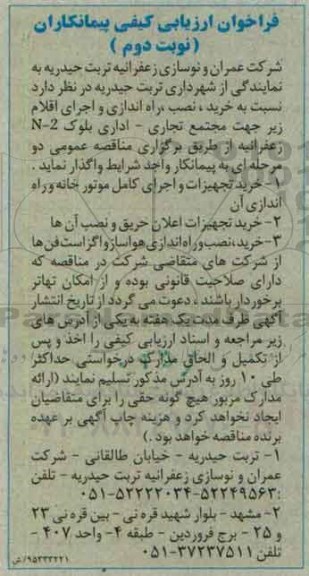 فراخوان ارزیابی کیفی پیمانکاران
(نوبت دوم )
شرکت عمران و نوسازی زعفرانیه تربت حیدریه به
نمایندگی از شهرداری تربت حیدریه در نظر دارد
نسبت به خرید ، نصب ،راه اندازی و اجرای اقلام
زیر جهت مجتمع تجاری - اداری بلوک N-2
زعفرانیه از طریق برگزاری مناقصه عمومی دو
مرحله ای به پیمانکار واجد شرایط واگذار نماید .
۱- خرید تجهیزات و اجرای کامل موتور خانه و راه
اندازی آن
۲- خرید تجهیزات اعلان حریق و نصب آن ها
۳-خرید،نصب وراه اندازی هواسازواگزاست فن ها
از شرکت های متقاضی شرکت در مناقصه که
دارای صلاحیت قانونی بوده و از امکان تهاتر
برخوردار باشند ، دعوت می گردد از تاریخ انتشار
آگهی ظرف مدت یک هفته به یکی از آدرس های
زیر مراجعه و اسناد ارزیابی کیفی را اخذ و پس
از تکمیل و الحاق مدارک درخواستی حداکثر
طی ۱۰ روز به آدرس مذکور تسلیم نمایند (ارائه
مدارک مزبور هیچ گونه حقی را برای متقاضیان
ایجاد نخواهد کرد و هزینه چاپ آگهی بر عهده
برنده مناقصه خواهد بود .)
۱- تربت حیدریه - خیابان طالقانی - شرکت
عمران و نوسازی زعفرانیه تربت حیدریه - تلفن
:۵۲۲۴۹۵۶۳-۵۲۲۲۲۰۳۴-۰۵۱
۲- مشهد - بلوار شهید قره نی - بین قره نی ۲۳
و ۲۵ - برج فروردین - طبقه ۴- واحد ۴۰۷ -
تلفن ۳۷۲۳۷۵۱۱-۰۵۱
۹۵۳۳۳۲۲۱/ش